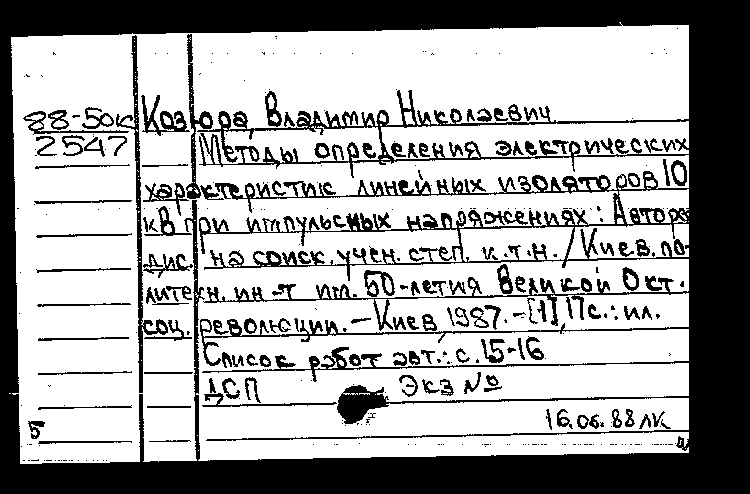 88-50к Козюра, Владимир Николаевич
2547 Методы определения электрических
характеристик линейных изоляторов 10
кВ при импульсных напряжениях: Автореф
дис. на соиск. учен. степ. к.т.н. / Киев. по-
литехн. ин-т им. 50-летия Великой Окт.
соц. революции. – Киев, 1987. – [1], 17 с.: ил.
Список работ авт.: с. 15-16
ДСП Экз №
16.06.88 ЛК
5